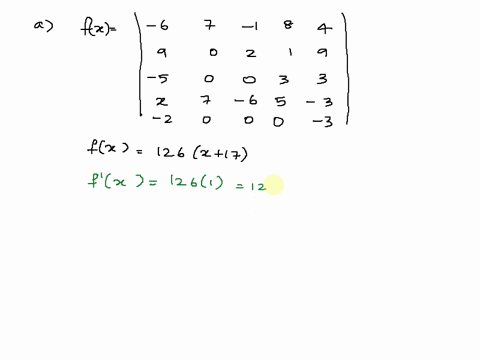 a) f(x)= | -6 7 -1 8 4 |
| 9 0 2 1 9 |
| -5 0 0 3 3 |
| x 7 -6 5 -3 |
| -2 0 0 0 -3 |
f(x) = 126 (x+17)
f'(x) = 126(1) = 12